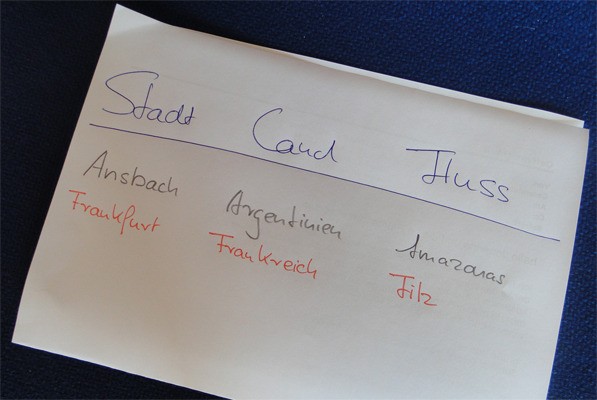 Stadt Land Fluss
Ansbach Argentinien Amazonas
Frankfurt Frankreich Filz